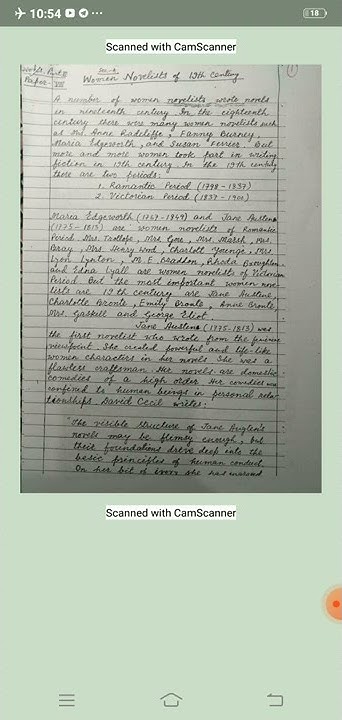 10:54
18
Scanned with CamScanner
Sec-A
Women Novelists of 19th Century
(1)
Paper- VII
A number of women novelists wrote novels
in nineteenth century. In the eighteenth
century there were many women novelists such
as Mrs. Anne Radcliffe, Fanny Burney,
Maria Edgeworth, and Susan Ferrier. But
more and more women took part in writing
fiction in 19th century. In the 19th century
there are two periods:
1. Romantic Period (1798 - 1837)
2. Victorian Period (1837 - 1900)
Maria Edgeworth (1767-1849) and Jane Austen
(1775-1817) are women novelists of Romantic
Period. Mrs. Trollope, Mrs. Gore, Mrs. Marsh, Mrs.
Bray, Mrs. Henry Wood, Charlott Younge, Mrs.
Lynn Lynton, M.E. Braddon, Rhoda Boughton
and Edna Lyall are women novelists of Victorian
Period. But the most important women nove-
lists are 19th century are Jane Austene,
Charlotte Bronte, Emily Bronte, Anne Bronte,
Mrs. Gaskell and George Eliot.
Jane Austens (1775-1813) was
the first novelist who wrote from the feminine
viewpoint. She created powerful and life-like
women characters in her novels. She was a
flawless craftsman. Her novels are domestic
comedies of a high order. Her comedies are
confined to human beings in personal rela-
tionships. David Cecil writes:
"The visible structure of Jane Austen's
novels may be flimsy enough, but
their foundations drive deep into the
basic principles of human conduct.
On her bit of ivory she has
Scanned with CamScanner